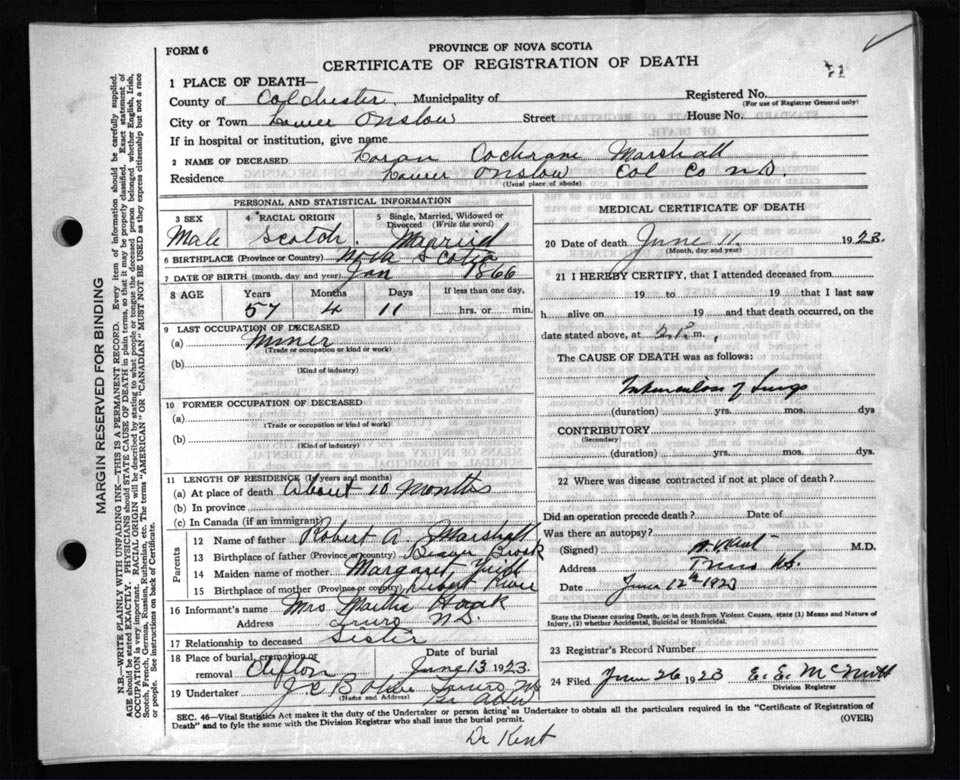 FORM 6
PROVINCE OF NOVA SCOTIA
CERTIFICATE OF REGISTRATION OF DEATH
MARGIN RESERVED FOR BINDING
N.B.—WRITE PLAINLY WITH UNFADING INK—THIS IS A PERMANENT RECORD. Every item of information should be carefully supplied.
AGE should be stated EXACTLY. PHYSICIANS should STATE CAUSE OF DEATH in plain terms, so that it may be properly classified. Exact statement of
OCCUPATION is very important. RACIAL ORIGIN will be described by stating to what people or tongue the deceased person belonged whether English, Irish,
Scotch, French, German, Russian, Ruthenian, etc. The terms "AMERICAN" OR "CANADIAN" MUST NOT BE USED as they express citizenship but not a race
or people. See instructions on back of Certificate.
1 PLACE OF DEATH—
County of Colchester Municipality of
Registered No.
(For use of Registrar General only)
City or Town Lower Onslow Street House No.
If in hospital or institution, give name
2 NAME OF DECEASED Cochrane Marshall
Residence Lower Onslow Col Co N.S.
(Usual place of abode)
PERSONAL AND STATISTICAL INFORMATION
3 SEX Male
4 RACIAL ORIGIN Scotch
5 Single, Married, Widowed or Divorced (Write the word) Married
6 BIRTHPLACE (Province or Country) Nova Scotia
7 DATE OF BIRTH (month, day and year) Jan 1866
8 AGE Years 57 Months 4 Days 11 If less than one day, hrs. or min.
9 LAST OCCUPATION OF DECEASED
(a) Miner
(Trade or occupation or kind or work)
(b)
(Kind of industry)
10 FORMER OCCUPATION OF DECEASED
(a)
(Trade or occupation or kind of work)
(b)
(Kind of industry)
11 LENGTH OF RESIDENCE (In years and months)
(a) At place of death About 10 Months
(b) In province
(c) In Canada (if an immigrant)
Parents
12 Name of father Robert A. Marshall
13 Birthplace of father (Province or country) Beaver Brook
14 Maiden name of mother Margaret
15 Birthplace of mother (Province or country) Debert River
16 Informant's name Mrs
Address Truro N.S.
17 Relationship to deceased Sister
18 Place of burial, cremation or removal Clifton Date of burial June 13 1923.
19 Undertaker J C B Truro N.S.
(Name and Address)
MEDICAL CERTIFICATE OF DEATH
20 Date of death June 11. 1923.
(Month, day and year)
21 I HEREBY CERTIFY, that I attended deceased from
19 to 19 that I last saw
h alive on 19 and that death occurred, on the
date stated above, at m.
The CAUSE OF DEATH was as follows:
Tuberculosis of Lungs
(duration) yrs. mos. dys
CONTRIBUTORY
(Secondary)
(duration) yrs. mos. dys.
22 Where was disease contracted if not at place of death?
Did an operation precede death? Date of
Was there an autopsy?
(Signed) Kent M.D.
Address Truro N.S.
Date June 12th 1923
State the Disease causing Death, or in death from Violent Causes, state (1) Means and Nature of
Injury, (2) whether Accidental, Suicidal or Homicidal.
23 Registrar's Record Number
24 Filed June 26 1923 E. E. McNutt
Division Registrar
SEC. 46—Vital Statistics Act makes it the duty of the Undertaker or person acting as Undertaker to obtain all the particulars required in the "Certificate of Registration of
Death" and to fyle the same with the Division Registrar who shall issue the burial permit.
(OVER)
Dr Kent